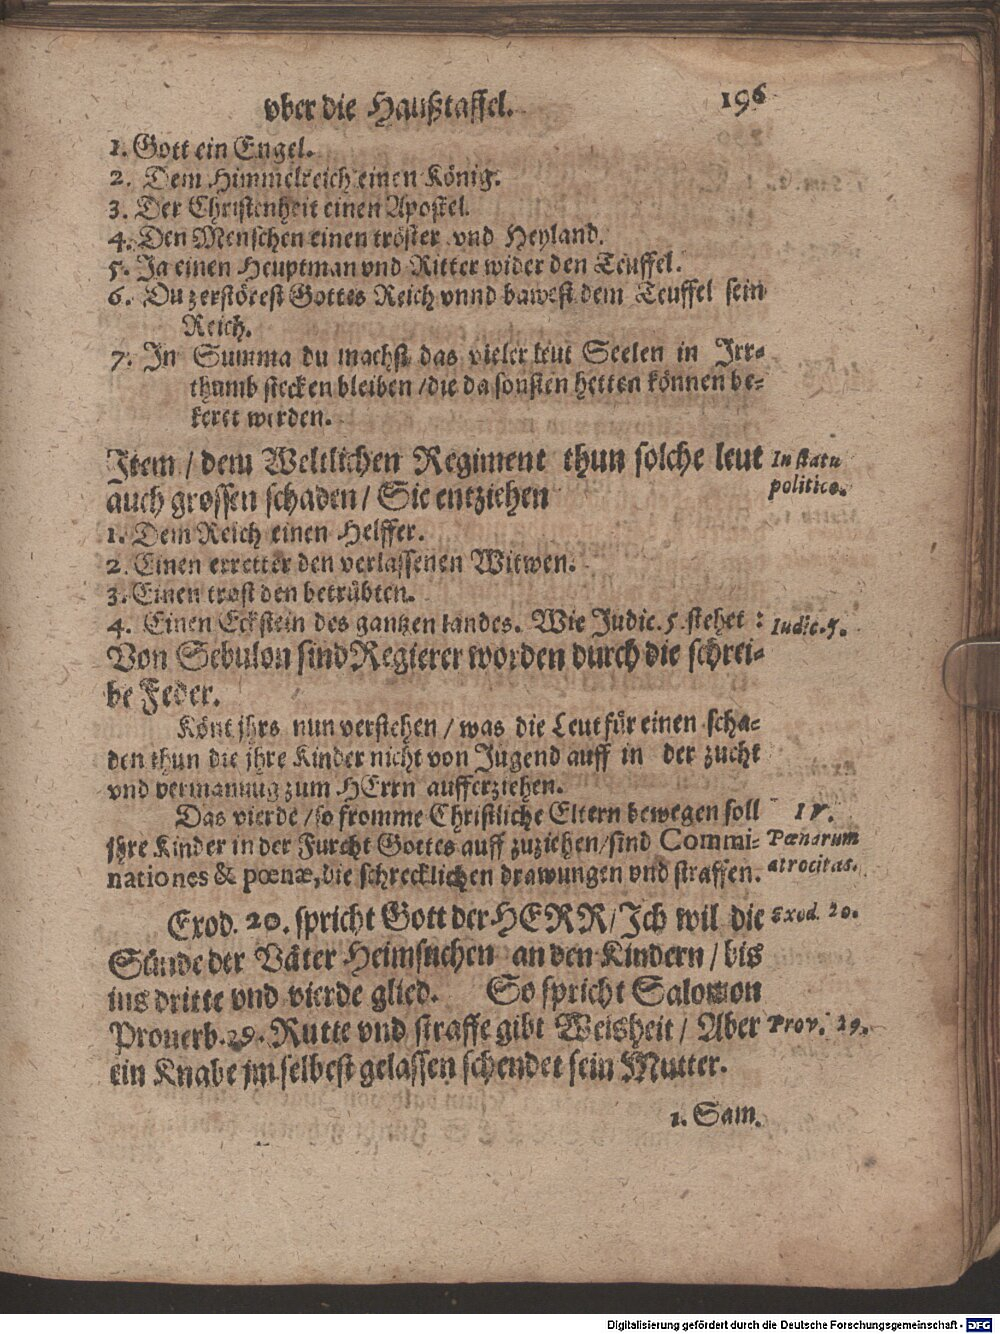 vber die Haußtaffel. 196
1. Gott ein Engel.
2. Dem Himmelreich einen König.
3. Der Christenheit einen Apostel.
4. Den Menschen einen tröster vnd Heyland.
5. Ja einen Heuptman vnd Ritter wider den Teuffel.
6. Du zerstörest Gottes Reich vnnd bawest dem Teuffel sein
Reich.
7. In Summa du machst das vieler leut Seelen in Irr-
thumb stecken bleiben / die da sonsten hetten können be-
keret werden.
Item / dem Weltlichen Regiment thun solche leut
In statu
auch grossen schaden / Sie entziehen
politico.
1. Dem Reich einen Helffer.
2. Einen erretter den verlassenen Witwen.
3. Einen trost den betrübten.
4. Einen Eckstein des gantzen landes. Wie Judic. 5. stehet :
Iudic. 5.
Von Sebulon sind Regierer worden durch die schrei-
be Feder.
Könt jhrs nun verstehen / was die Leut für einen scha-
den thun die jhre Kinder nicht von Jugend auff in der zucht
vnd vermannug zum HErrn aufferziehen.
Das vierde / so fromme Christliche Eltern bewegen soll
IV.
jhre Kinder in der Furcht Gottes auff zuziehen / sind Commi-
Pœnarum
nationes & pœnæ, die schrecklichen drawungen vnd straffen.
atrocitas.
Exod. 20. spricht Gott der HERR / Ich wil die
Exod. 20.
Sünde der Väter Heimsuchen an den Kindern / bis
ins dritte vnd vierde glied. So spricht Salomon
Prouerb. 29. Rutte vnd straffe gibt Weisheit / Aber
Prov. 29.
ein Knabe jm selbest gelassen schendet sein Mutter.
1. Sam.
Digitalisierung gefördert durch die Deutsche Forschungsgemeinschaft - DFG